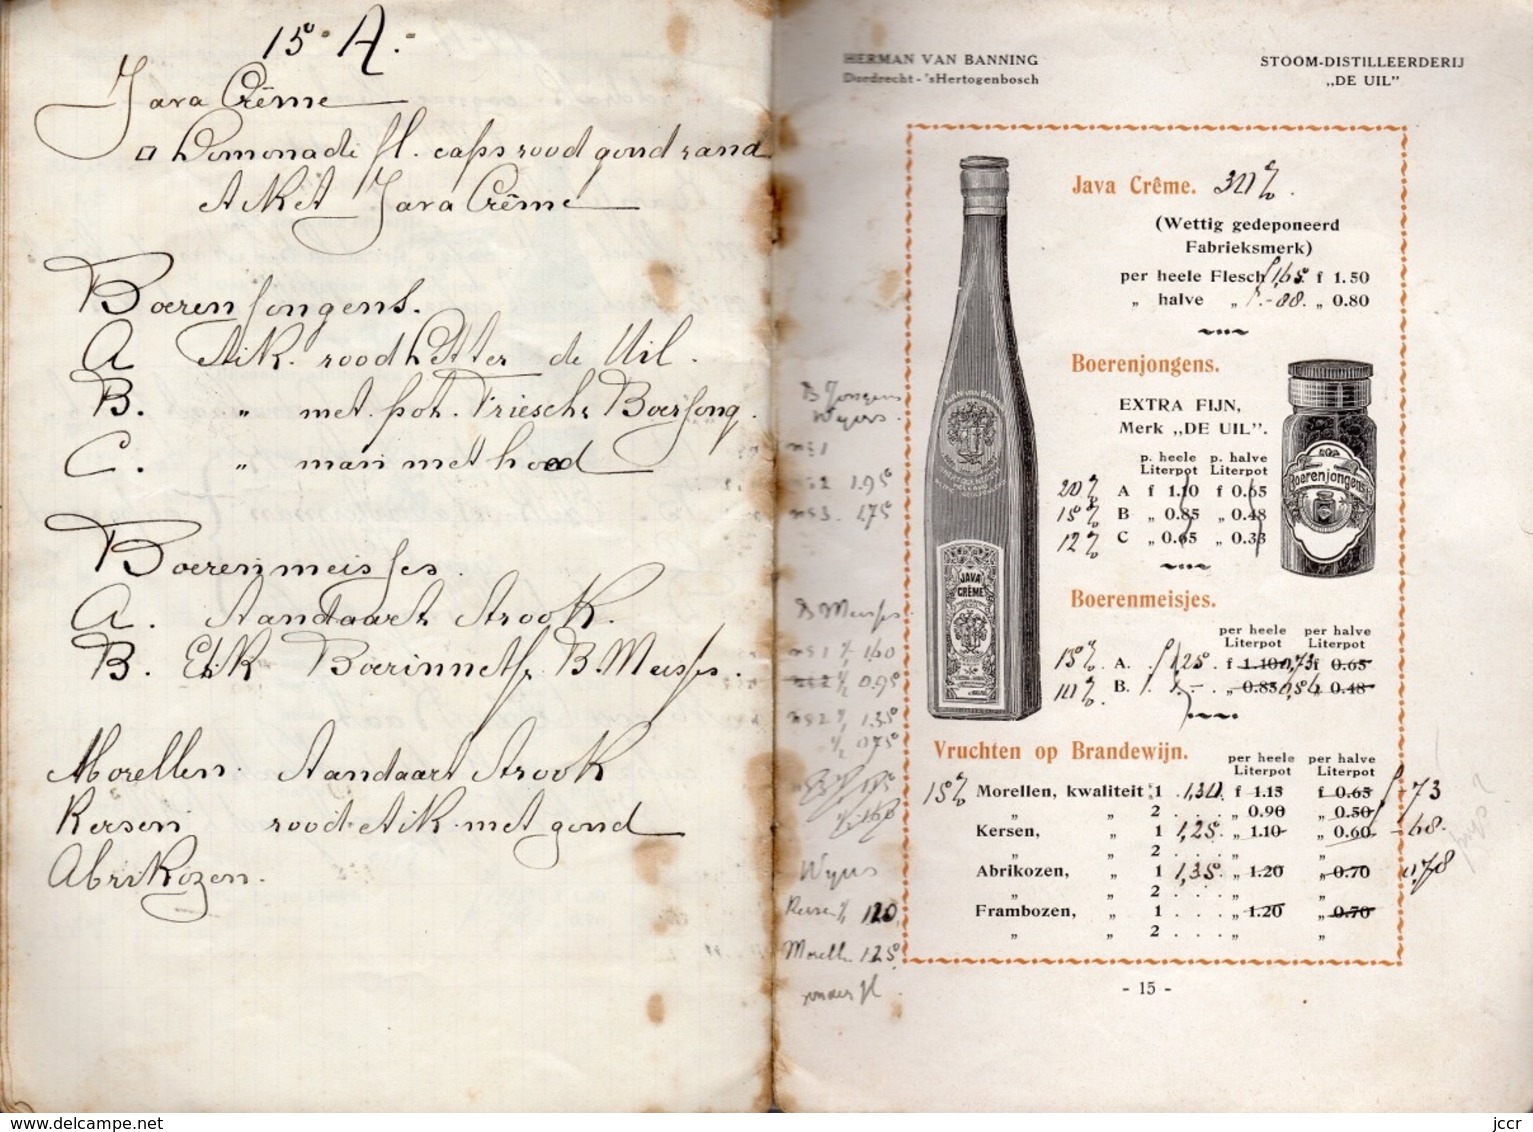 15 A.
Java Crême
□ Limonade fl. caps rood goud rand
Etiket Java Crême
Boerenjongens.
A Etik. rood letter de Uil.
B. „ met pot. Friesche Boerjong.
C. „ man met hoed
Boerenmeisjes.
A. Standaart Strook.
B. Etik Boerinnetje B. Meisjes.
Morellen. Standaart Strook
Kersen rood Etik. met goud
Abrikozen.
B Jongens
Wyers.
no 1
no 2 1.95
no 3. 1.75
B Meisjes.
no 1 1/1 1.60
no 2 1/2 0.95
no 2 1/1 1.35
1/2 0.75
Wyers
Kersen 1/1 1.20
Morelle 1.25
zonder fl.
HERMAN VAN BANNING
Dordrecht - 'sHertogenbosch
STOOM-DISTILLEERDERIJ
„DE UIL”
Java Crême. 30%.
(Wettig gedeponeerd
Fabrieksmerk)
per heele Flesch f 1,65. f 1.50
„ halve „ f.-88. „ 0.80
Boerenjongens.
EXTRA FIJN,
Merk „DE UIL”.
p. heele p. halve
Literpot Literpot
20% A f 1.10 f 0.65
15% B „ 0.85 „ 0.48
12% C „ 0.65 „ 0.33
Boerenjongens
JAVA
CRÊME
Boerenmeisjes.
per heele per halve
Literpot Literpot
15% A. f 1,25. f 1.10 0,73 f 0.65
10% B. f 1.- . „ 0.85 „ 0.48
Vruchten op Brandewijn.
per heele per halve
Literpot Literpot
15% Morellen, kwaliteit 1 1,30. f 1.15 f 0.65 f -73
„ „ 2 . . . . „ 0.90 „ 0.50
Kersen, „ 1 1,25. „ 1.10 „ 0.60 -68.
„ „ 2 . . . . „ „
Abrikozen, „ 1 1,35. „ 1.20 „ 0.70 0,78
„ „ 2 . . . . „ „
Frambozen, „ 1 . . . . „ 1.20 „ 0.70
„ „ 2 . . . . „ „
- 15 -
www.delcampe.net
jccr